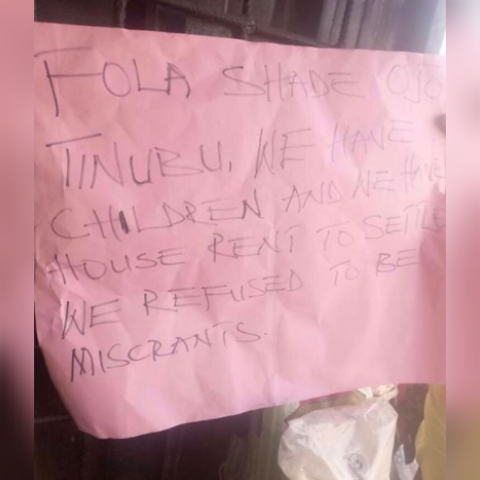 FOLA SHADE OJO
TINUBU, WE HAVE
CHILDREN AND WE HAVE
HOUSE RENT TO SETTLE
WE REFUSED TO BE
MISCRANTS.